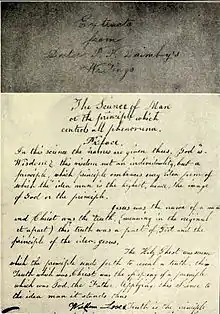 Extracts
from
Doctor P. P. Quimby's
Writings
The Science of Man
or the principle which
controls all phenomena.
Preface.
In this science the names are given thus, God is
Wisdom. This wisdom not an individuality but a
principle, which principle embraces every idea form of
which the idea man is the highest, hence the image
of God or the principle.
Jesus was the name of a man
and Christ was the truth, (meaning in the original
this truth was a part of God and the
principle of the idea, Jesus,
The Holy Ghost was
which the principle made forth to reveal a truth. This
Truth which was Christ was the of a principle
which was God, the Father. Applying this science to
the idea man it stands thus
Wisdom Love Truth is the principle